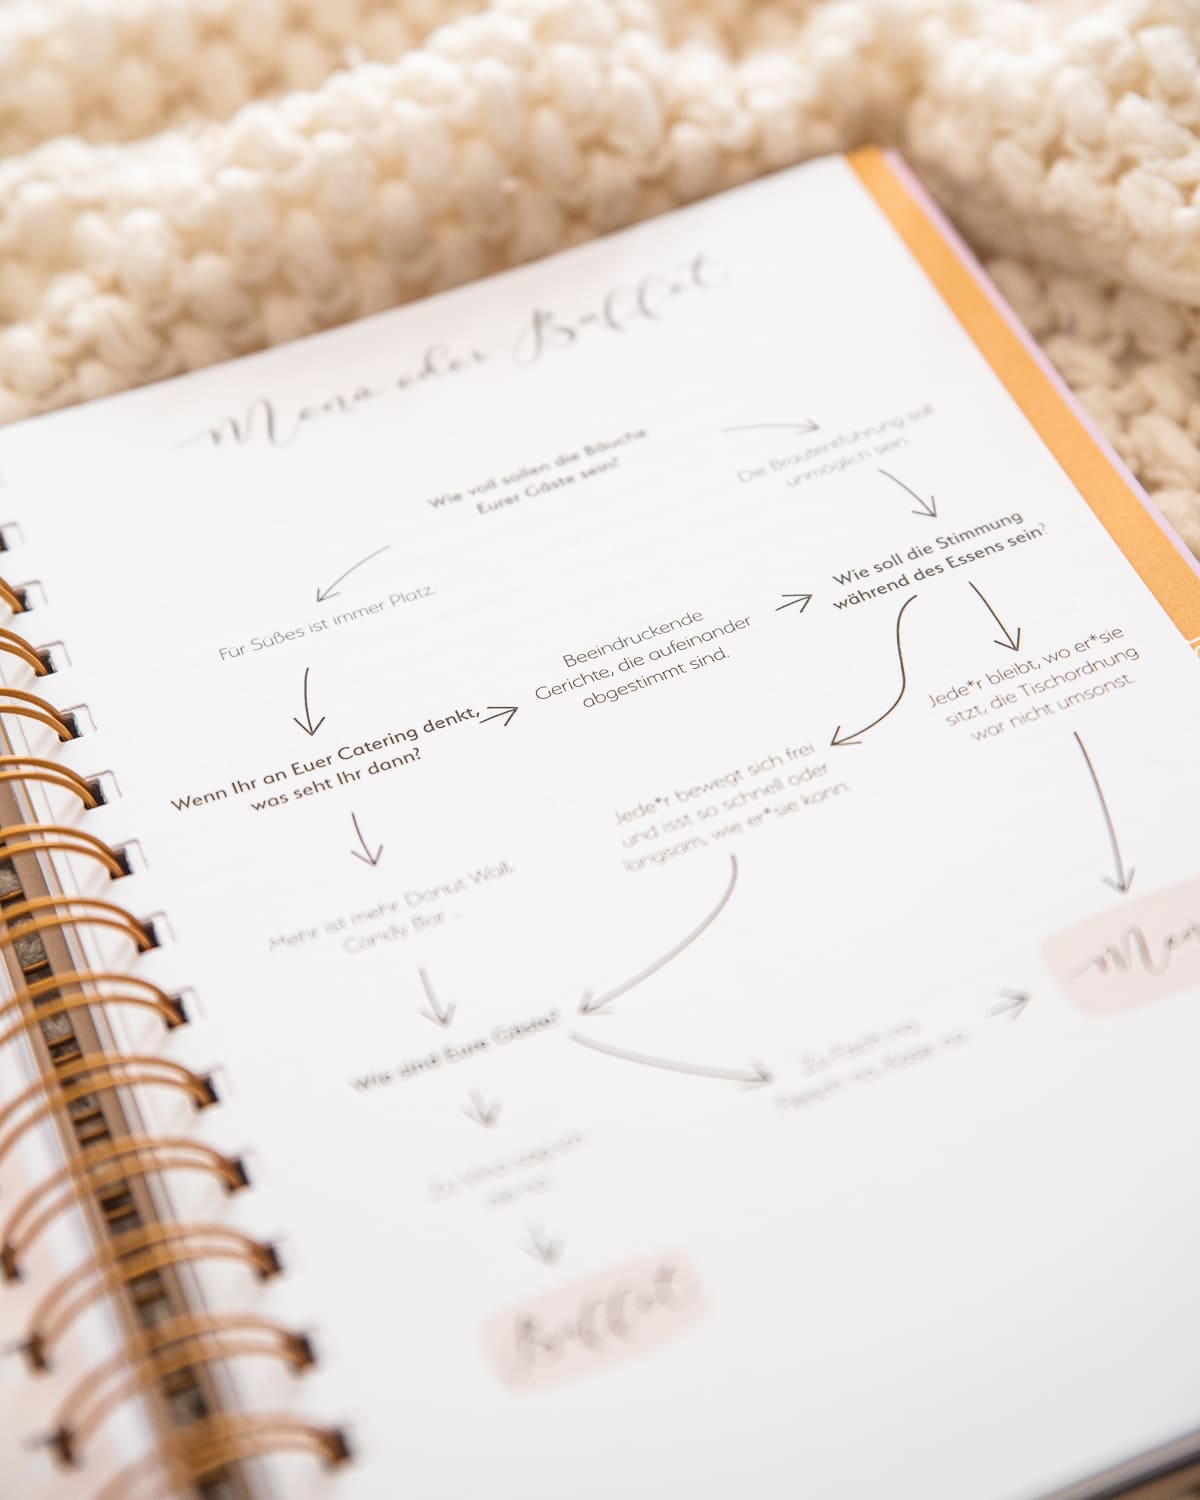 Menü oder Buffet
Wie voll sollen die Bäuche
Eurer Gäste sein?
Die Brautentführung soll
unmöglich sein.
Für Süßes ist immer Platz.
Wie soll die Stimmung
während des Essens sein?
Beeindruckende
Gerichte, die aufeinander
abgestimmt sind.
Wenn Ihr an Euer Catering denkt,
was seht Ihr dann?
Jede*r bleibt, wo er*sie
sitzt, die Tischordnung
war nicht umsonst.
Jede*r bewegt sich frei
und isst so schnell oder
langsam, wie er*sie kann.
Mehr ist mehr Donut Wall,
Candy Bar
Wie sind Eure Gäste?
Buffet